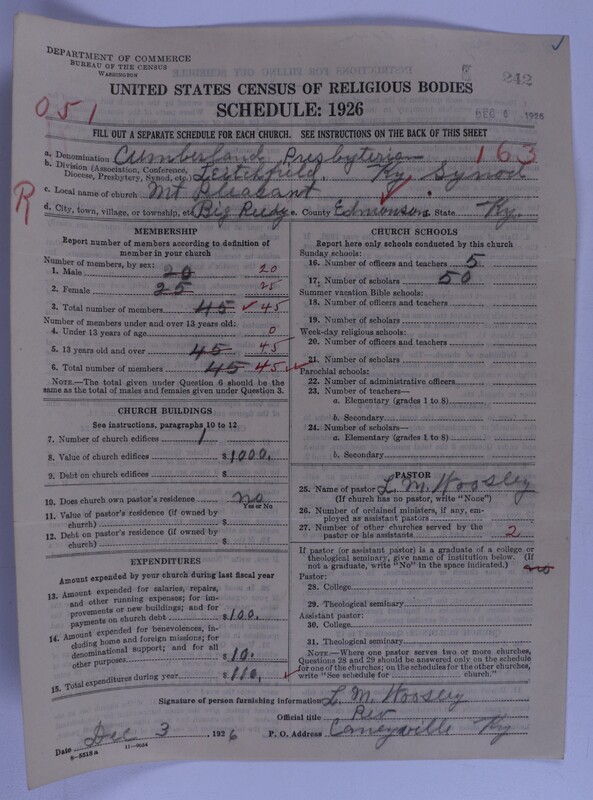 DEPARTMENT OF COMMERCE
BUREAU OF THE CENSUS
WASHINGTON
242
UNITED STATES CENSUS OF RELIGIOUS BODIES
SCHEDULE: 1926
DEC 6 1926
051
FILL OUT A SEPARATE SCHEDULE FOR EACH CHURCH. SEE INSTRUCTIONS ON THE BACK OF THIS SHEET
a. Denomination Cumberland Presbyterian 163
b. Division (Association, Conference, Diocese, Presbytery, Synod, etc.) Leitchfield. Ky Synod
R
c. Local name of church Mt Pleasant
d. City, town, village, or township, etc. Big Reedy e. County Edmonson f. State Ky.
MEMBERSHIP
Report number of members according to definition of member in your church
Number of members, by sex:
1. Male 20 20
2. Female 25 25
3. Total number of members 45 ✓ 45
Number of members under and over 13 years old:
4. Under 13 years of age 0
5. 13 years old and over 45 45
6. Total number of members 45 45 ✓
NOTE.—The total given under Question 6 should be the same as the total of males and females given under Question 3.
CHURCH BUILDINGS
See instructions, paragraphs 10 to 12
7. Number of church edifices 1
8. Value of church edifices $1000.
9. Debt on church edifices $
10. Does church own pastor's residence no
Yes or No
11. Value of pastor's residence (if owned by church) $
12. Debt on pastor's residence (if owned by church) $
EXPENDITURES
Amount expended by your church during last fiscal year
13. Amount expended for salaries, repairs, and other running expenses; for improvements or new buildings; and for payments on church debt $100.
14. Amount expended for benevolences, including home and foreign missions; for denominational support; and for all other purposes $10.
15. Total expenditures during year $110. ✓
CHURCH SCHOOLS
Report here only schools conducted by this church
Sunday schools:
16. Number of officers and teachers 5
17. Number of scholars 50
Summer vacation Bible schools:
18. Number of officers and teachers
19. Number of scholars
Week-day religious schools:
20. Number of officers and teachers
21. Number of scholars
Parochial schools:
22. Number of administrative officers
23. Number of teachers—
a. Elementary (grades 1 to 8)
b. Secondary
24. Number of scholars—
a. Elementary (grades 1 to 8)
b. Secondary
PASTOR
25. Name of pastor L. M. Woosley
(If church has no pastor, write "None")
26. Number of ordained ministers, if any, employed as assistant pastors
27. Number of other churches served by the pastor or his assistants 2
If pastor (or assistant pastor) is a graduate of a college or theological seminary, give name of institution below. (If not a graduate, write "No" in the space indicated.) no
Pastor:
28. College
29. Theological seminary
Assistant pastor:
30. College
31. Theological seminary
NOTE.—Where one pastor serves two or more churches, Questions 28 and 29 should be answered only on the schedule for one of the churches; on the schedules for the other churches, write "See schedule for church."
Signature of person furnishing information L. M. Woosley
Official title Rev
Date Dec 3, 1926 P. O. Address Caneyville Ky
8—5513a 11—9054